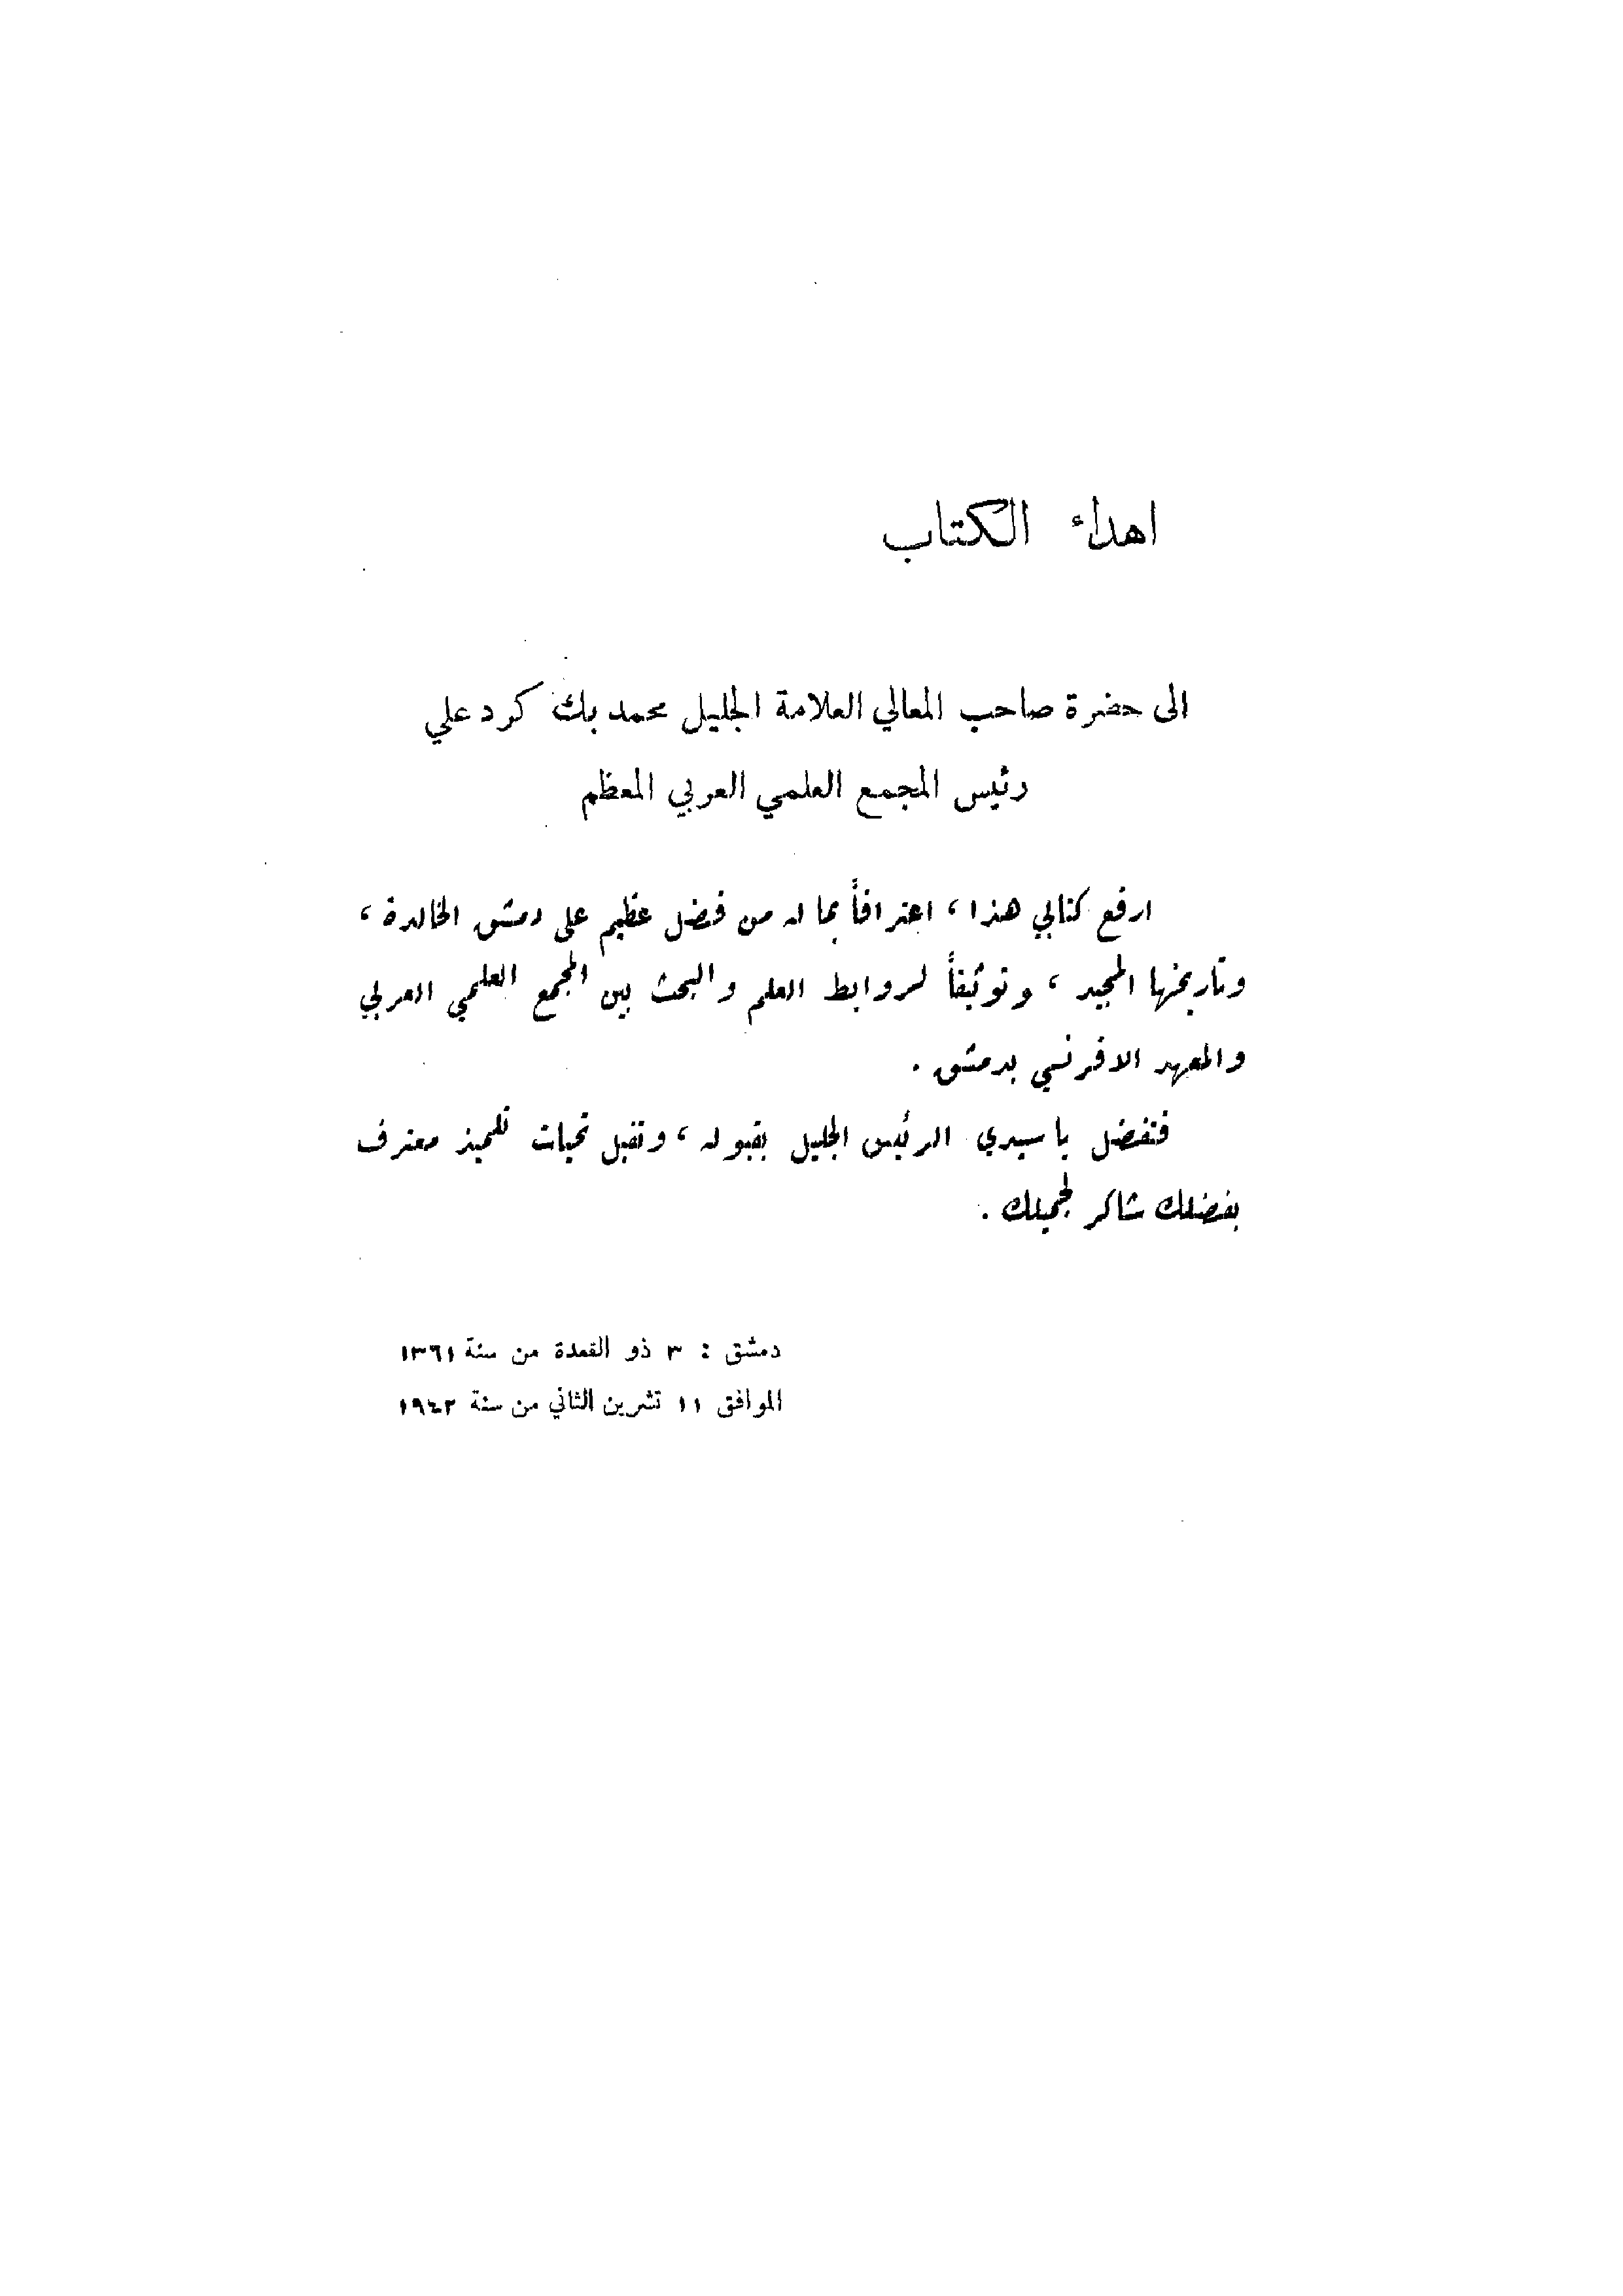 اهداء الكتاب
الى حضرة صاحب المعالي العلامة الجليل محمد بك كرد علي
رئيس المجمع العلمي العربي المعظم
ارفع كتابي هذا، اعترافاً بما له من فضل عظيم على دمشق الخالدة،
وتاريخها المجيد، وتوثيقاً لروابط العلم والبحث بين المجمع العلمي العربي
والمعهد الافرنسي بدمشق.
فتفضل يا سيدي الرئيس الجليل بقبوله، وتقبل تحيات تلميذ معترف
بفضلك شاكر لجميلك.
دمشق : ٣ ذو القعدة من سنة ١٣٦١
الموافق ١١ تشرين الثاني من سنة ١٩٤٢